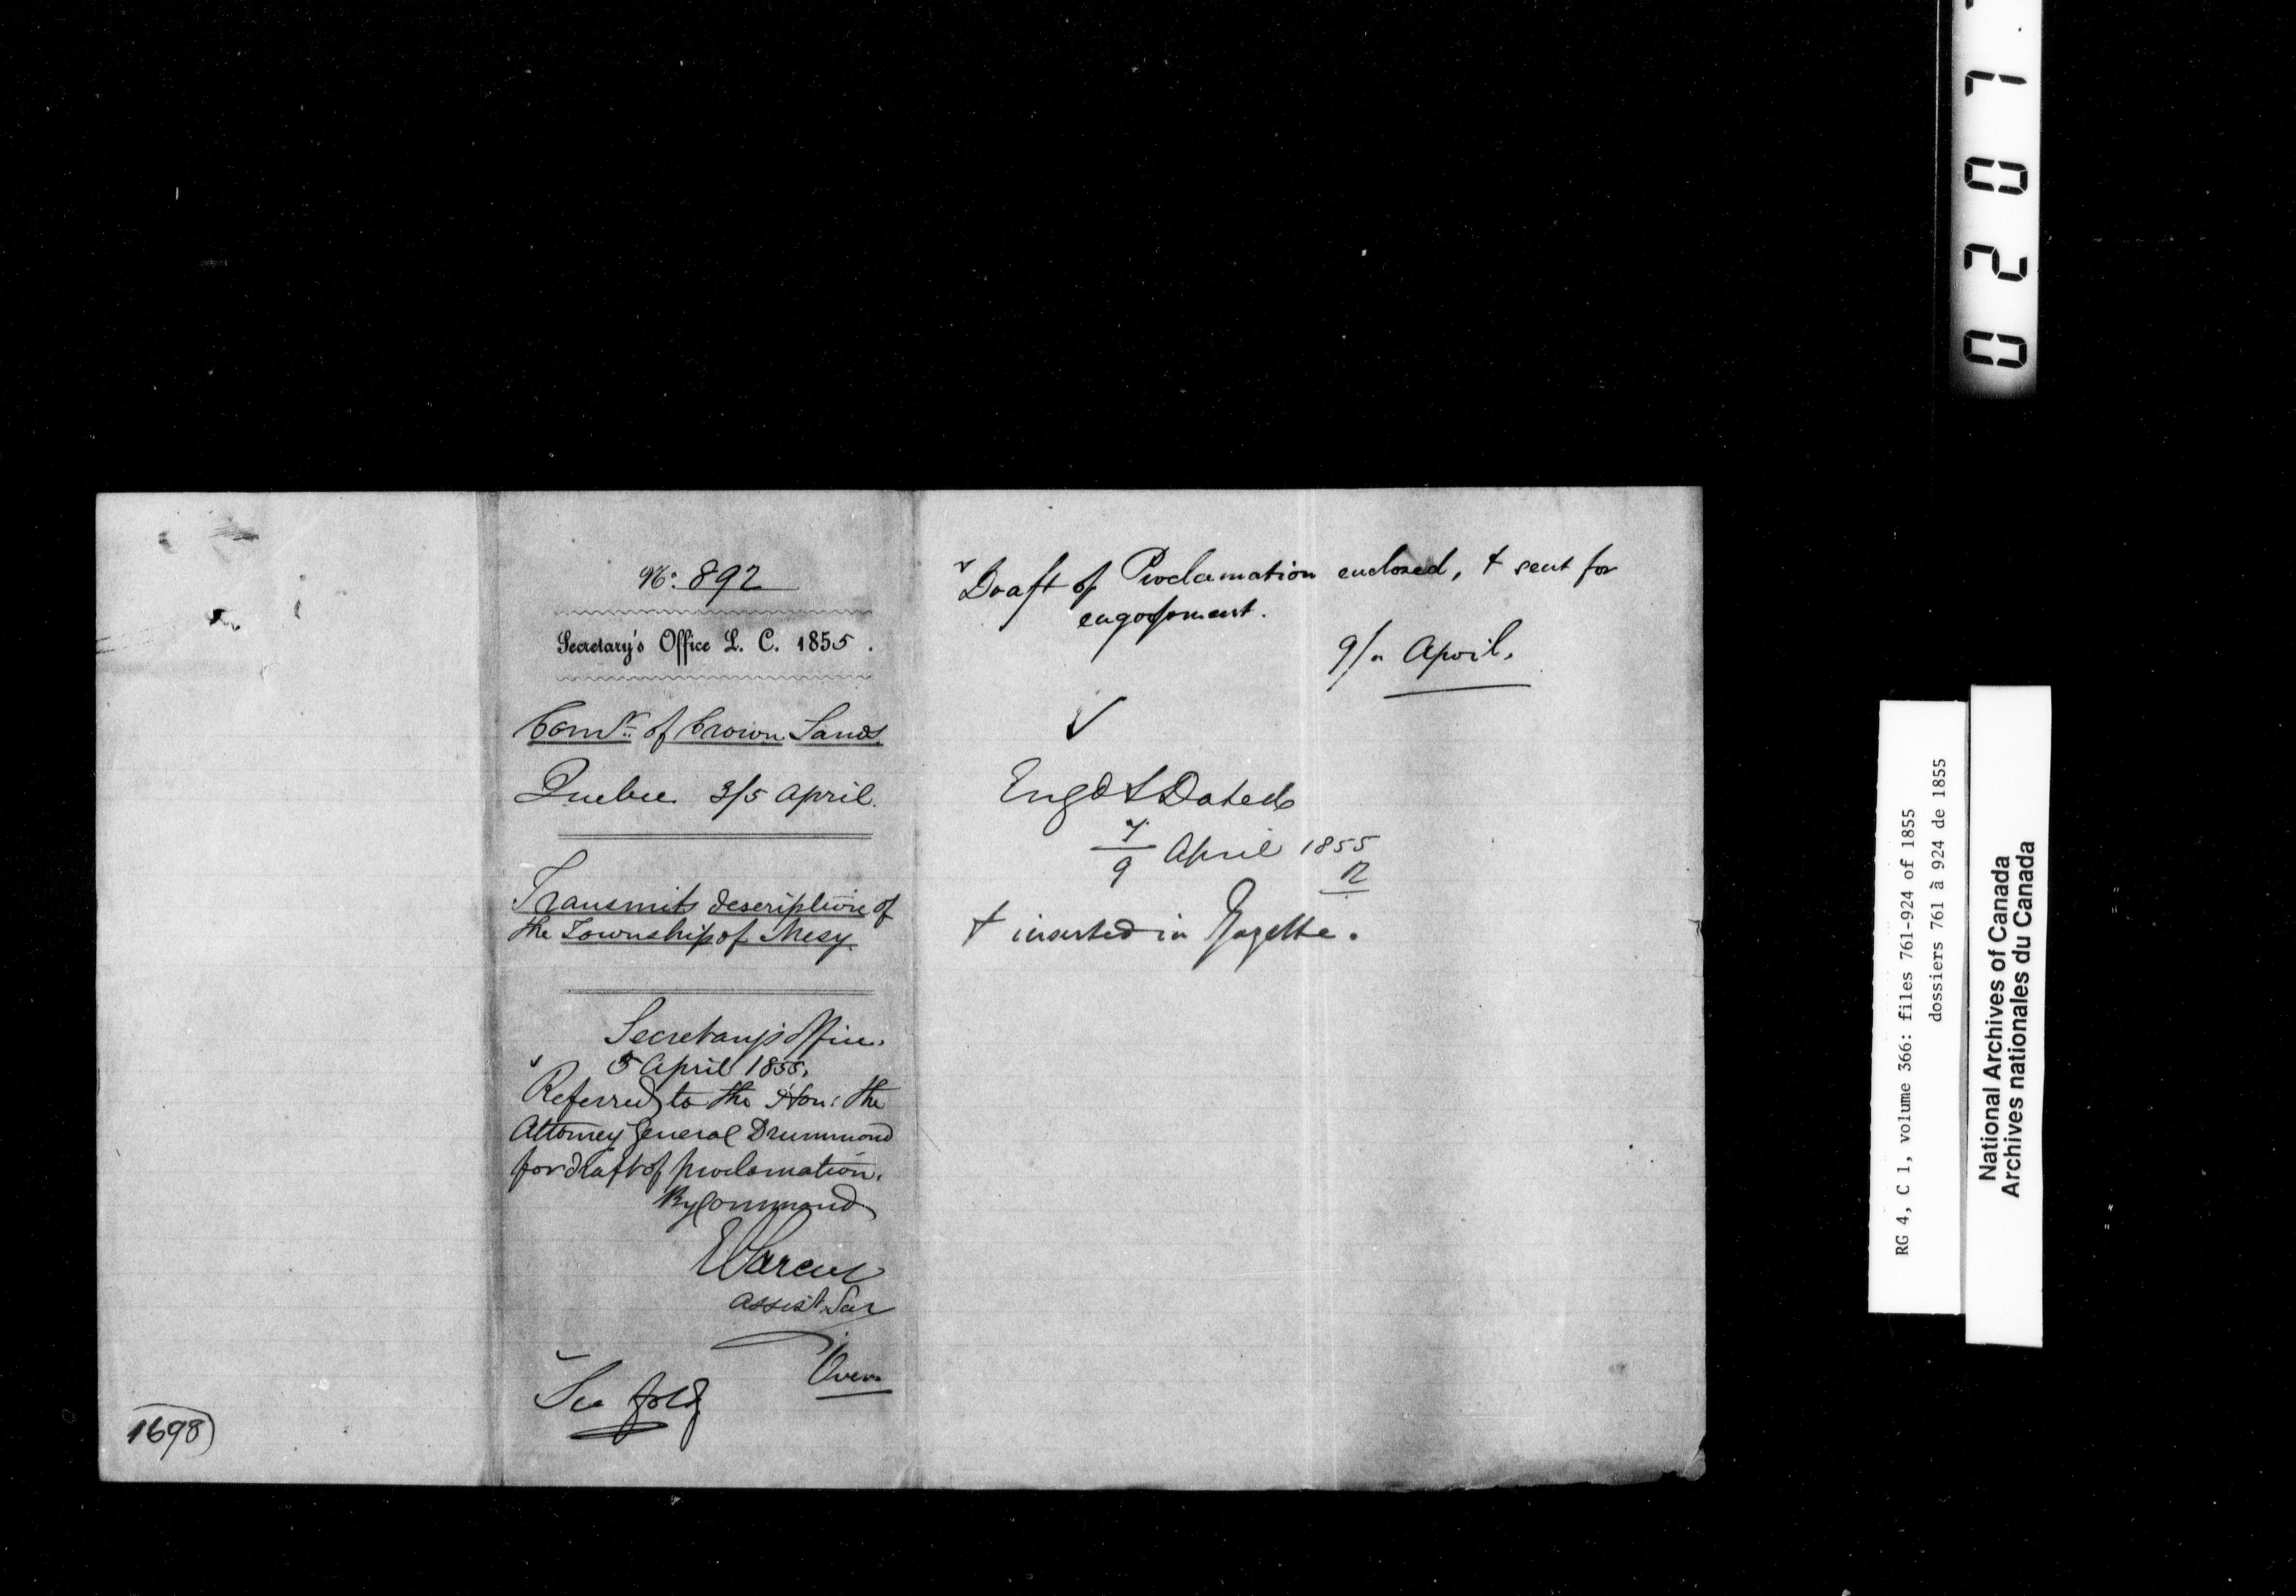 No. 892
Secretary's Office L. C. 1855.
Comr. of Crown Lands.
Quebec 3/5 April.
Transmits description of
the Township of Mesy.
Secretary's Office.
5 April 1855.
Referred to the Hon: the
Attorney General Drummond
for draft of proclamation.
By Command
E Parent
Assist. Secr
Over
See fold
1698
Draft of Proclamation enclosed, & sent for
engrossment.
9/" April.
Engd & Dated
7/9 April 1855
& inserted in Gazette.
0 2 0 7
RG 4, C 1, volume 366: files 761-924 of 1855
dossiers 761 à 924 de 1855
National Archives of Canada
Archives nationales du Canada